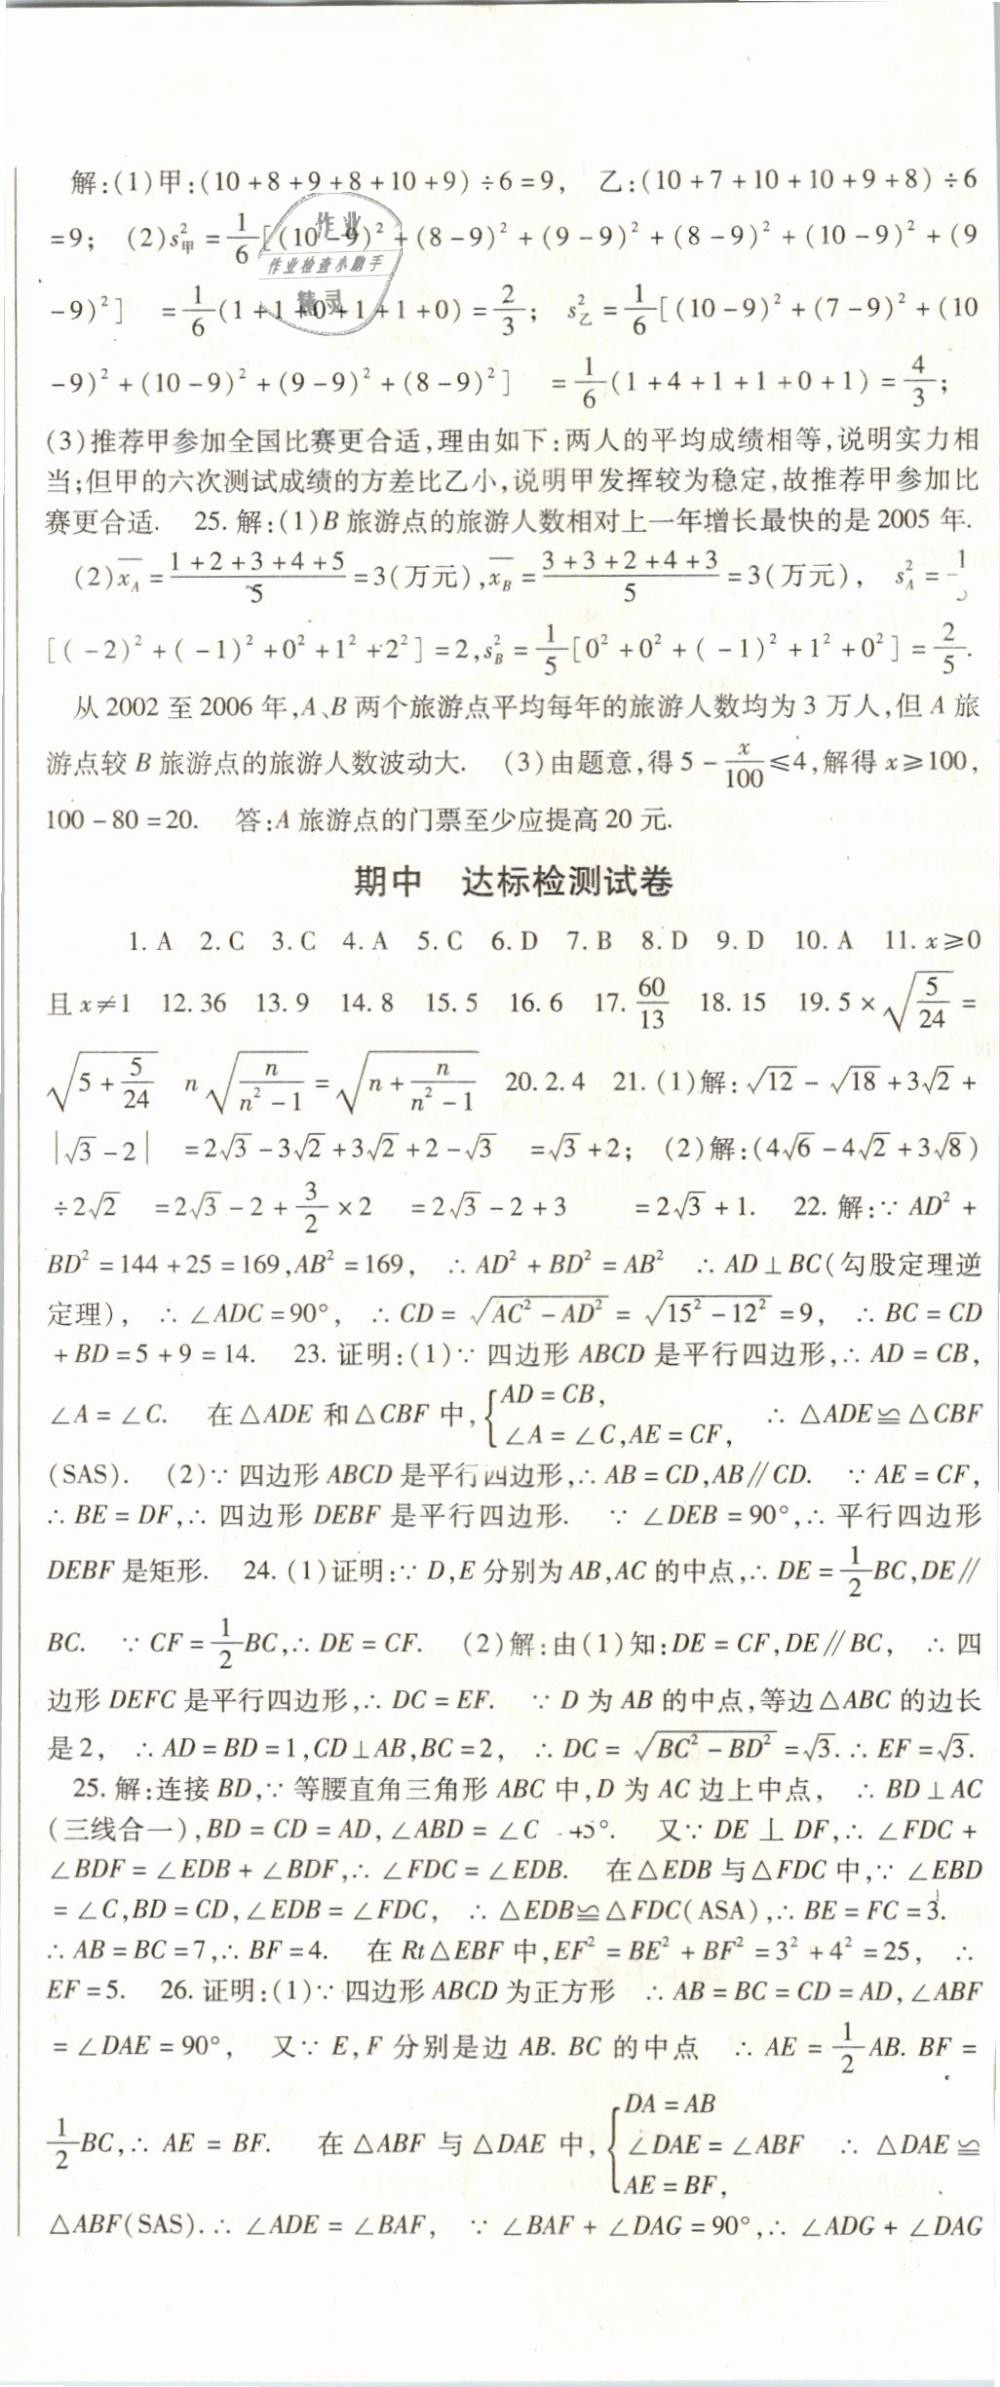 解:(1)甲:(10+8+9+8+10+9)÷6=9, 乙:(10+7+10+10+9+8)÷6
=9; (2)s²甲=1/6[(10-9)²+(8-9)²+(9-9)²+(8-9)²+(10-9)²+(9
-9)²] =1/6(1+1+0+1+1+0)=2/3; s²乙=1/6[(10-9)²+(7-9)²+(10
-9)²+(10-9)²+(9-9)²+(8-9)²] =1/6(1+4+1+1+0+1)=4/3;
(3)推荐甲参加全国比赛更合适,理由如下:两人的平均成绩相等,说明实力相
当;但甲的六次测试成绩的方差比乙小,说明甲发挥较为稳定,故推荐甲参加比
赛更合适. 25.解:(1)B旅游点的旅游人数相对上一年增长最快的是2005年.
(2)x̄A=(1+2+3+4+5)/5=3(万元),x̄B=(3+3+2+4+3)/5=3(万元), s²A=1/
[(-2)²+(-1)²+0²+1²+2²]=2,s²B=1/5[0²+0²+(-1)²+1²+0²]=2/5.
从2002至2006年,A、B两个旅游点平均每年的旅游人数均为3万人,但A旅
游点较B旅游点的旅游人数波动大. (3)由题意,得5-x/100≤4,解得x≥100,
100-80=20. 答:A旅游点的门票至少应提高20元.
期中 达标检测试卷
1.A 2.C 3.C 4.A 5.C 6.D 7.B 8.D 9.D 10.A 11.x≥0
且x≠1 12.36 13.9 14.8 15.5 16.6 17.60/13 18.15 19.5×√(5/24)=
√(5+5/24) n√(n/(n²-1))=√(n+n/(n²-1)) 20.2.4 21.(1)解:√12-√18+3√2+
|√3-2| =2√3-3√2+3√2+2-√3 =√3+2; (2)解:(4√6-4√2+3√8)
÷2√2 =2√3-2+3/2×2 =2√3-2+3 =2√3+1. 22.解:∵AD²+
BD²=144+25=169,AB²=169, ∴AD²+BD²=AB² ∴AD⊥BC(勾股定理逆
定理), ∴∠ADC=90°, ∴CD=√(AC²-AD²)=√(15²-12²)=9, ∴BC=CD
+BD=5+9=14. 23.证明:(1)∵四边形ABCD是平行四边形,∴AD=CB,
∠A=∠C. 在△ADE和△CBF中,{AD=CB, ∠A=∠C,AE=CF, ∴△ADE≌△CBF
(SAS). (2)∵四边形ABCD是平行四边形,∴AB=CD,AB∥CD. ∵AE=CF,
∴BE=DF,∴四边形DEBF是平行四边形. ∵∠DEB=90°,∴平行四边形
DEBF是矩形. 24.(1)证明:∵D,E分别为AB,AC的中点,∴DE=1/2BC,DE∥
BC. ∵CF=1/2BC,∴DE=CF. (2)解:由(1)知:DE=CF,DE∥BC, ∴四
边形DEFC是平行四边形,∴DC=EF. ∵D为AB的中点,等边△ABC的边长
是2, ∴AD=BD=1,CD⊥AB,BC=2, ∴DC=√(BC²-BD²)=√3.∴EF=√3.
25.解:连接BD,∵等腰直角三角形ABC中,D为AC边上中点, ∴BD⊥AC
(三线合一),BD=CD=AD,∠ABD=∠C 5°. 又∵DE⊥DF,∴∠FDC+
∠BDF=∠EDB+∠BDF,∴∠FDC=∠EDB. 在△EDB与△FDC中,∵∠EBD
=∠C,BD=CD,∠EDB=∠FDC, ∴△EDB≌△FDC(ASA),∴BE=FC=3.
∴AB=BC=7,∴BF=4. 在Rt△EBF中,EF²=BE²+BF²=3²+4²=25, ∴
EF=5. 26.证明:(1)∵四边形ABCD为正方形 ∴AB=BC=CD=AD,∠ABF
=∠DAE=90°, 又∵E,F分别是边AB.BC的中点 ∴AE=1/2AB.BF=
1/2BC,∴AE=BF. 在△ABF与△DAE中,{DA=AB ∠DAE=∠ABF AE=BF, ∴△DAE≌
△ABF(SAS).∴∠ADE=∠BAF, ∵∠BAF+∠DAG=90°,∴∠ADG+∠DAG
作业
作业检查小助手
精灵